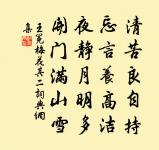 清苦良自持
忘言養高潔
夜靜月明多
開門滿山雪
王冕梅花其二詞典網
集